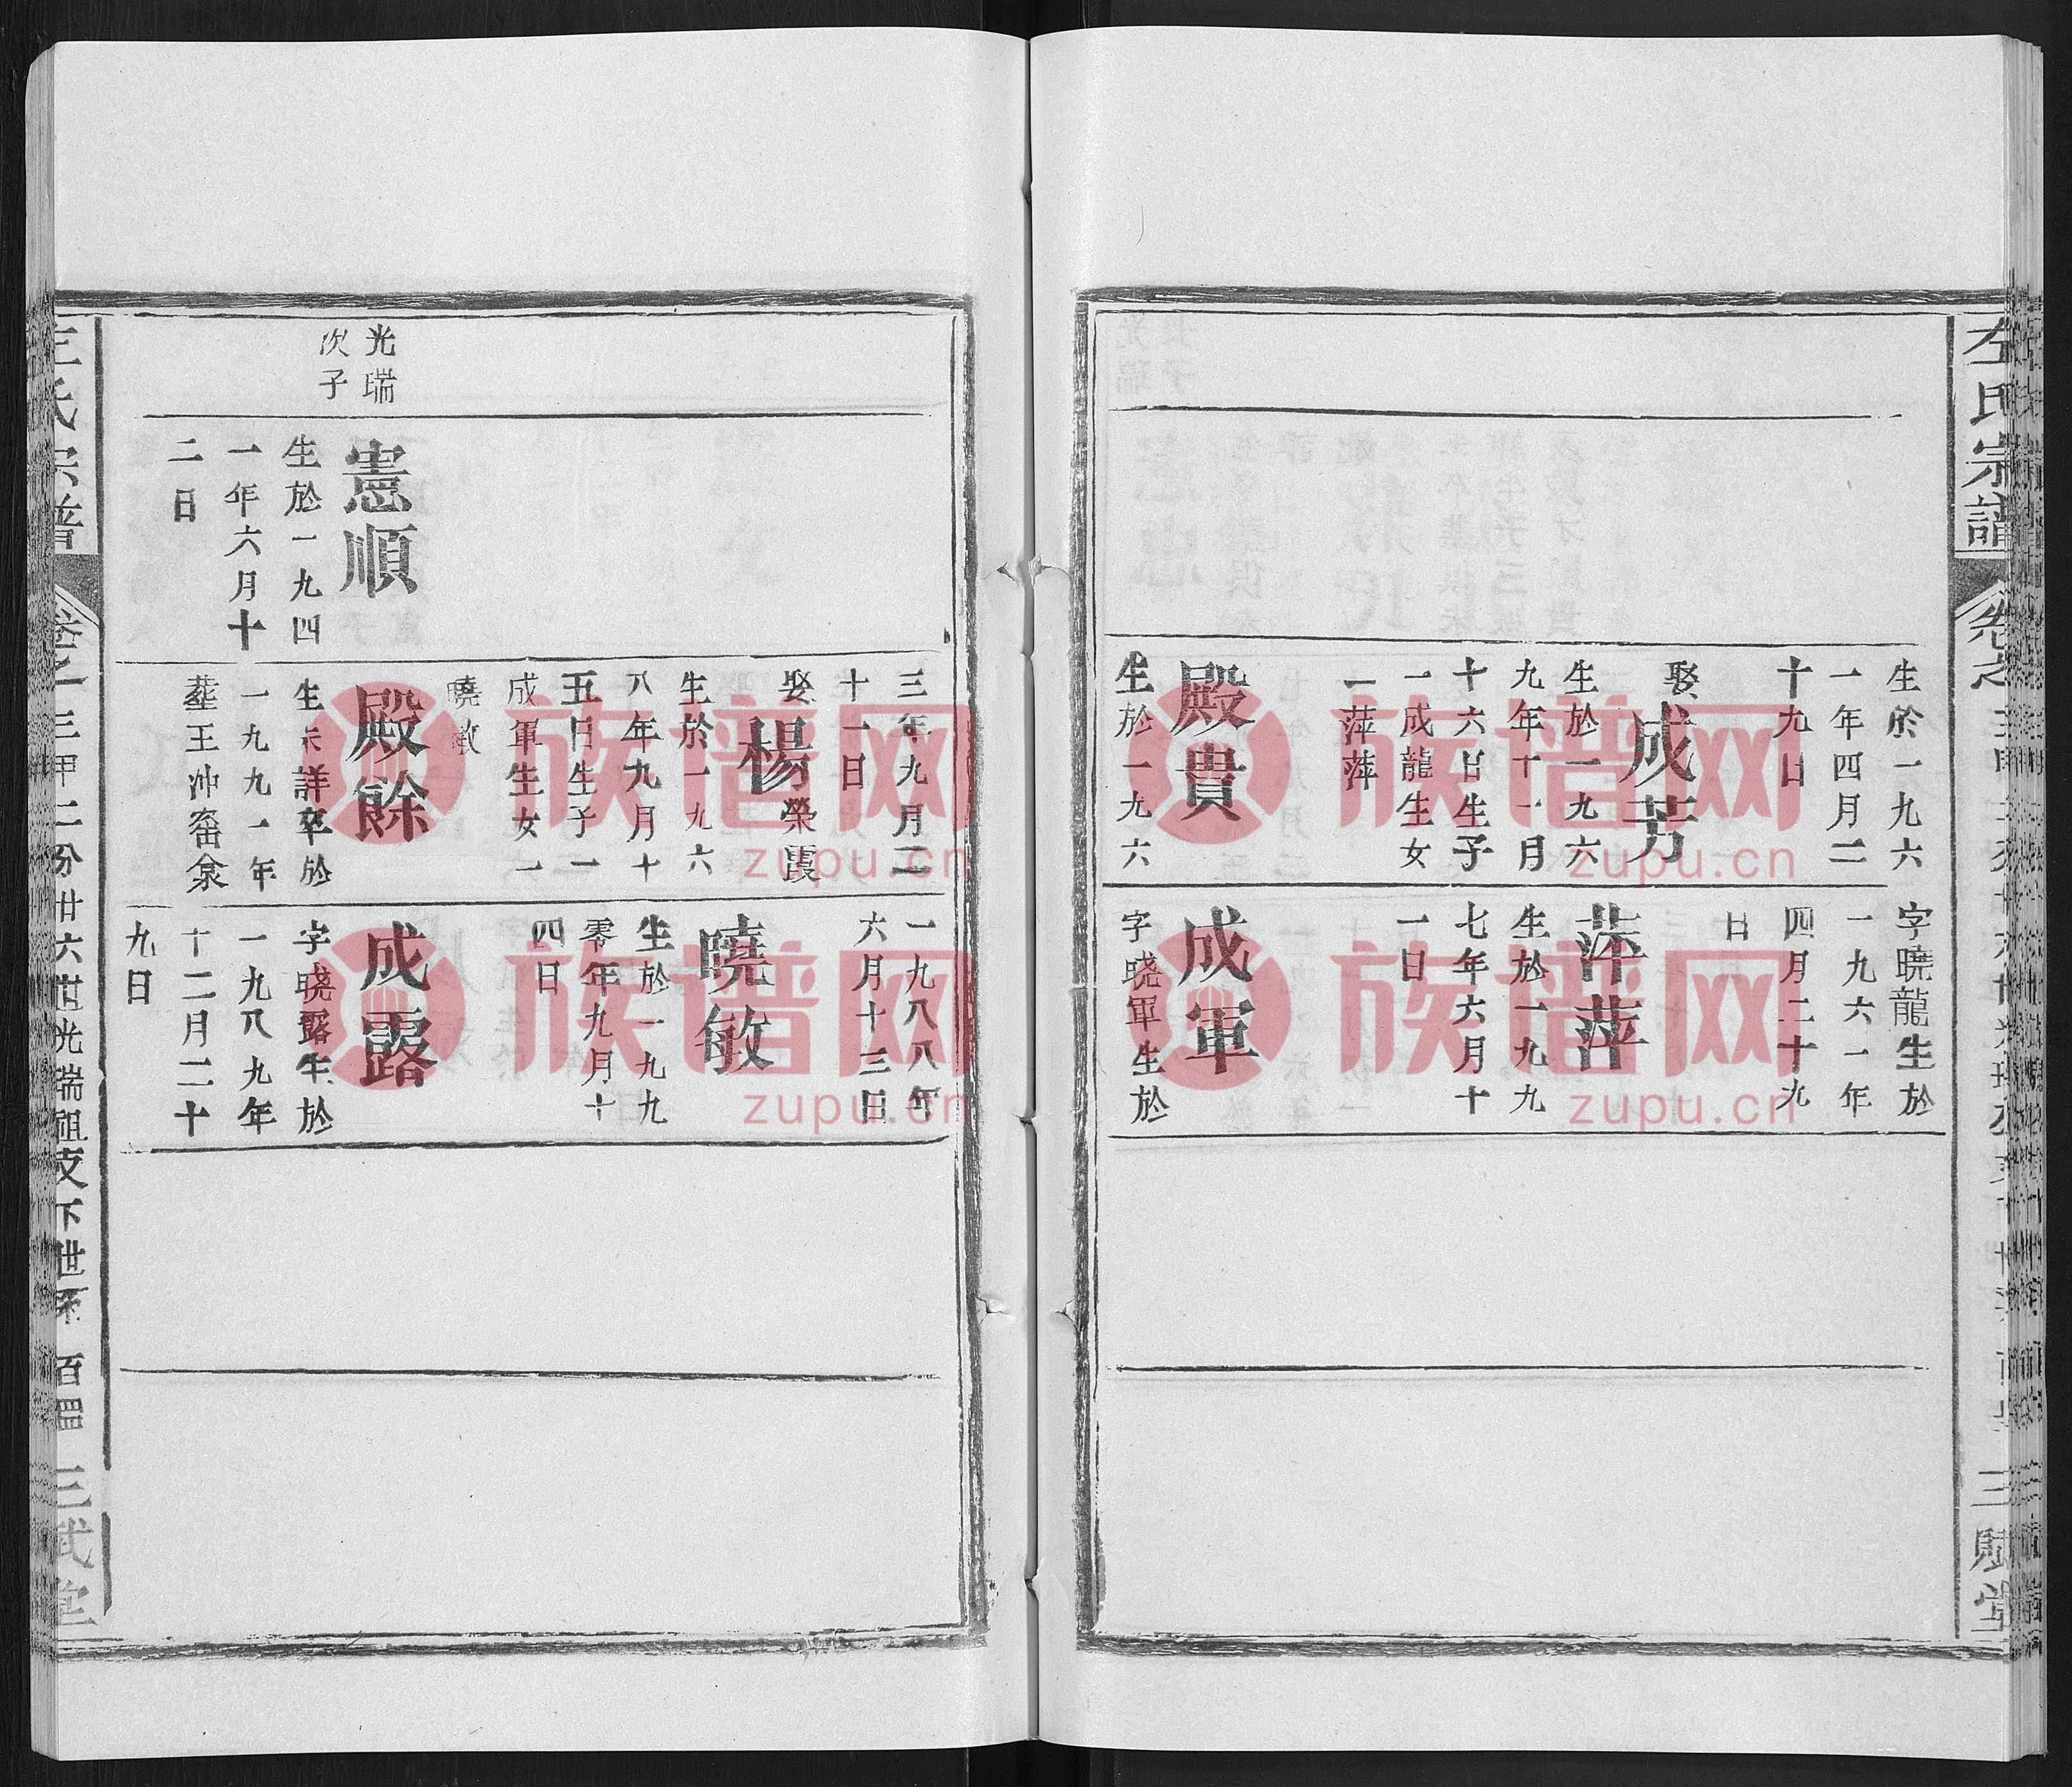 左氏宗譜
卷之
三賦堂
生於一九六
一年四月二
十九日
娶成芳
生於一九六
九年十一月
十六日生子
一成龍生女
一萍萍
殿貴
生於一九六
字曉龍生於
一九六一年
四月二十九
日
萍萍
生於一九九
七年六月十
一日
成軍
字曉軍生於
光瑞
次子
憲順
生於一九四
一年六月十
二日
三年九月二
十一日
娶楊榮霞
生於一九六
八年九月十
五日生子一
成軍生女一
曉敏
殿餘
生未詳卒於
一九九一年
葬王沖窑
一九八八年
六月十三日
曉敏
生於一九九
零年九月十
四日
成露
字曉露生於
一九八九年
十二月二十
九日
氏宗譜
卷之一三甲二分廿六世光瑞祖支下世系
三賦堂
族谱网
zupu.cn
族谱网
zupu.cn
族谱网
zupu.cn
族谱网
zupu.cn